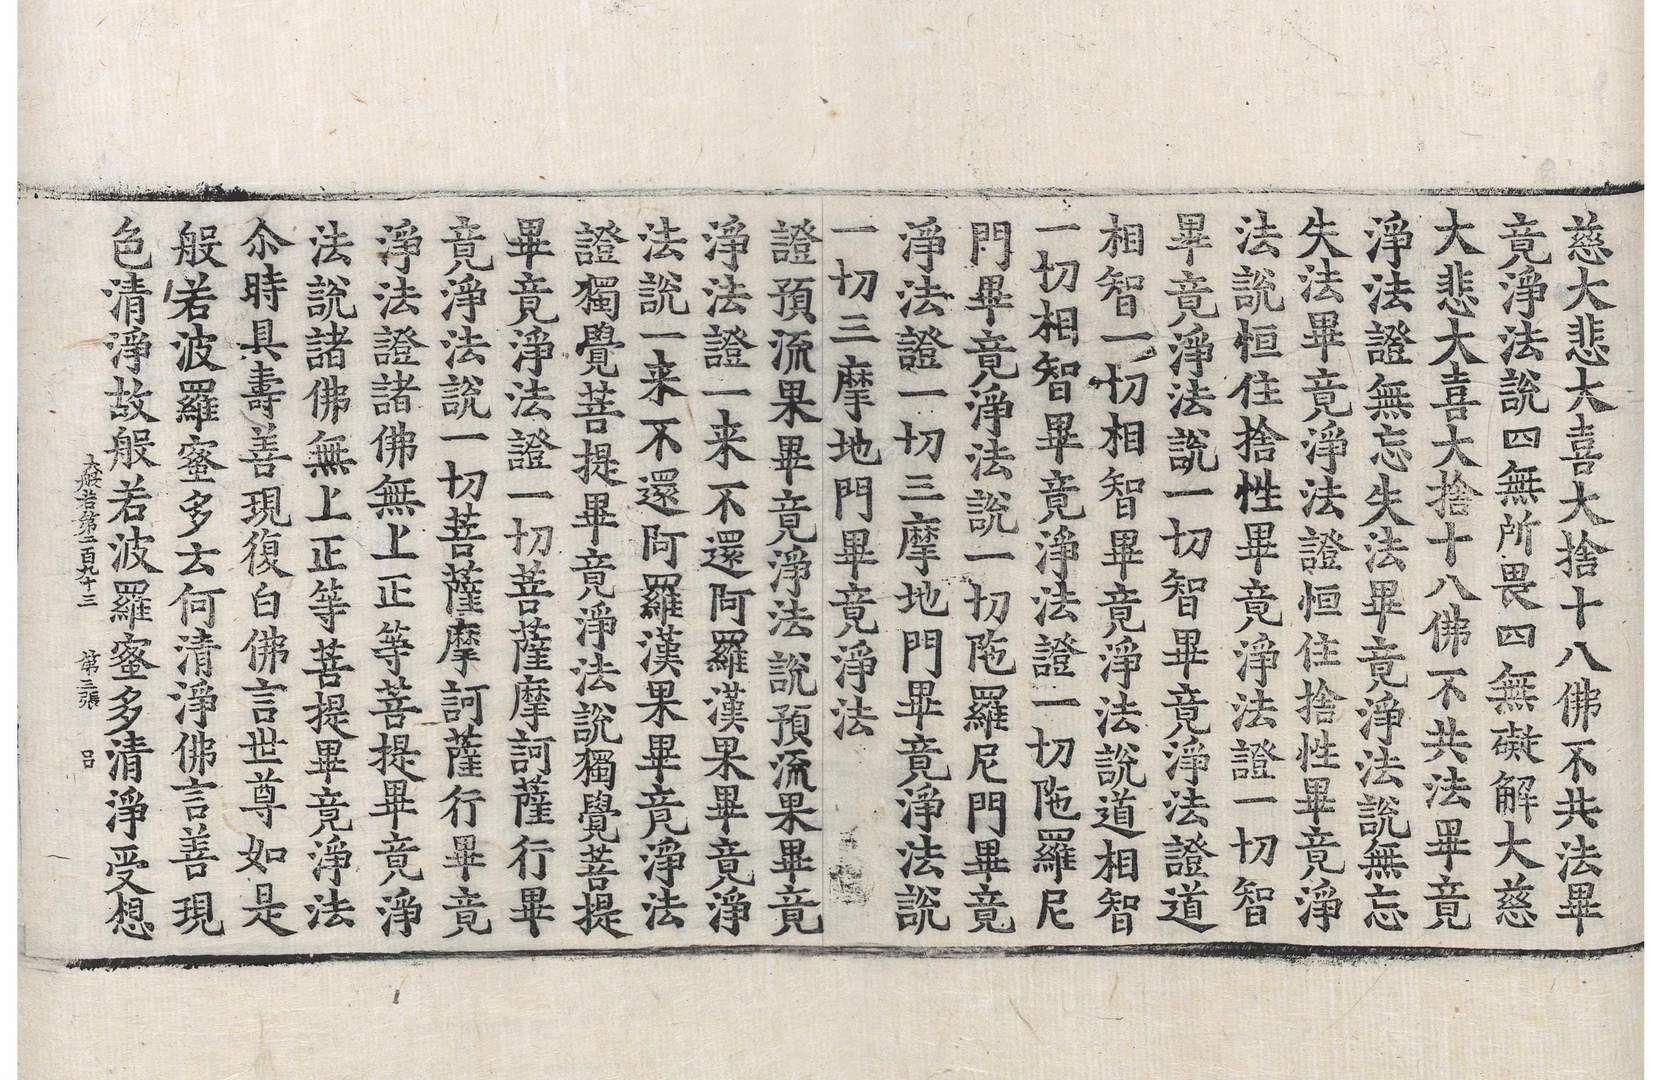 慈大悲大喜大捨十八佛不共法畢
竟淨法說四無所畏四無礙解大慈
大悲大喜大捨十八佛不共法畢竟
淨法證無忘失法畢竟淨法說無忘
失法畢竟淨法證恒住捨性畢竟淨
法說恒住捨性畢竟淨法證一切智
畢竟淨法說一切智畢竟淨法證道
相智一切相智畢竟淨法說道相智
一切相智畢竟淨法證一切陁羅尼
門畢竟淨法說一切陁羅尼門畢竟
淨法證一切三摩地門畢竟淨法說
一切三摩地門畢竟淨法
證預流果畢竟淨法說預流果畢竟
淨法證一来不還阿羅漢果畢竟淨
法說一来不還阿羅漢果畢竟淨法
證獨覺菩提畢竟淨法說獨覺菩提
畢竟淨法證一切菩薩摩訶薩行畢
竟淨法說一切菩薩摩訶薩行畢竟
淨法證諸佛無上正等菩提畢竟淨
法說諸佛無上正等菩提畢竟淨法
尒時具壽善現復白佛言世尊如是
般若波羅蜜多云何清淨佛言善現
色清淨故般若波羅蜜多清淨受想
大般若第二百九十三 第三張 呂